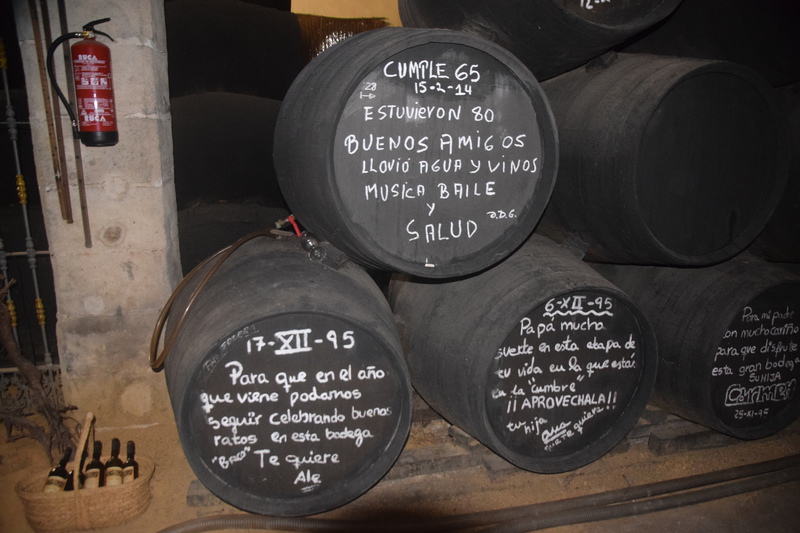 RUCA
RUCA
CUMPLE 65
15-2-14
ESTUVIERON 80
BUENOS AMIGOS
LLOVIÓ AGUA Y VINOS
MUSICA BAILE
Y
SALUD
J.D.G.
17-XII-95
Para que en el año
que viene podamos
seguir celebrando buenos
ratos en esta bodega
"BACO" Te quiere
Ale
6-XII-95
Papá mucha
suerte en esta etapa de
tu vida en la que estás
en la "cumbre"
¡¡APROVECHALA!!
tu hija
Ana
que te quiere!!
Para mi padre
con mucho cariño
para que disfrute
esta gran bodega
SU HIJA
Carmen
25-XI-95